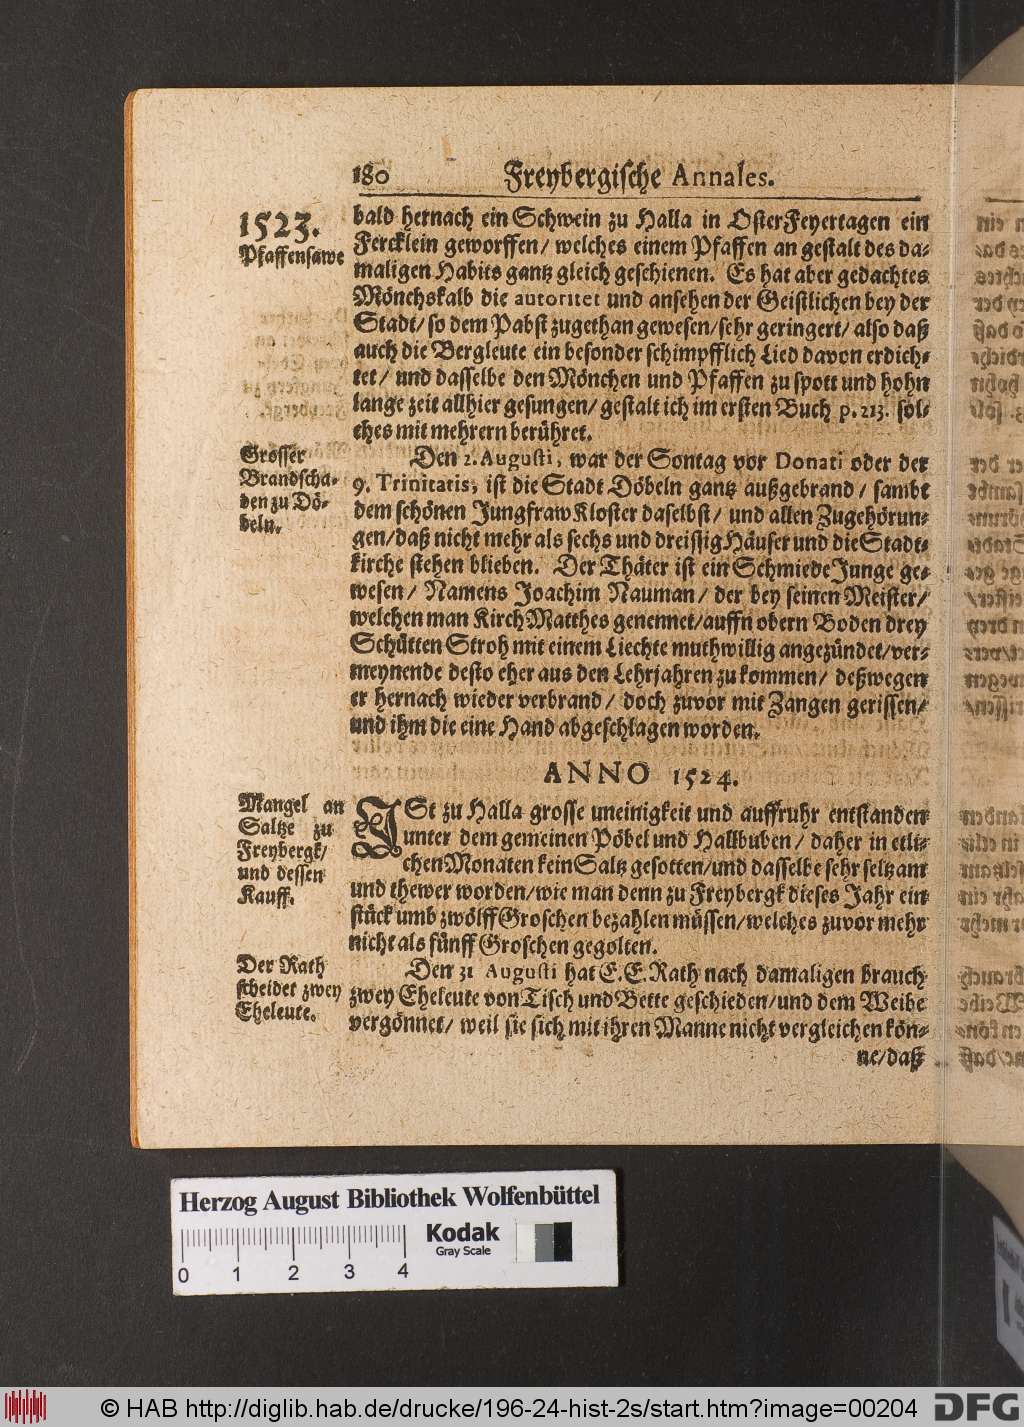 180 Freybergische Annales.
1523.
Pfaffensawe
bald hernach ein Schwein zu Halla in OsterFeyertagen ein
Fercklein geworffen/ welches einem Pfaffen an gestalt des da-
maligen Habits gantz gleich geschienen. Es hat aber gedachtes
Mönchskalb die autoritet und ansehen der Geistlichen bey der
Stadt/ so dem Pabst zugethan gewesen/ sehr geringert/ also daß
auch die Bergleute ein besonder schimpfflich Lied davon erdich-
tet/ und dasselbe den Mönchen und Pfaffen zu spott und hohn
lange zeit allhier gesungen/ gestalt ich im ersten Buch p. 213. sol-
ches mit mehrern berühret.
Grosser
Brandscha-
den zu Dö-
beln.
Den 2. Augusti, war der Sontag vor Donati oder der
9. Trinitatis, ist die Stadt Döbeln gantz außgebrand/ sambt
dem schönen Jungfraw Kloster daselbst/ und allen Zugehörun-
gen/ daß nicht mehr als sechs und dreissig Häuser und die Stadt-
kirche stehen blieben. Der Thäter ist ein Schmiede Junge ge-
wesen/ Namens Joachim Nauman/ der bey seinen Meister/
welchen man Kirch Matthes genennet/ auffn obern Boden drey
Schütten Stroh mit einem Liechte muthwillig angezündet/ ver-
meynende desto eher aus den Lehrjahren zu kommen/ deßwegen
er hernach wieder verbrand/ doch zuvor mit Zangen gerissen/
und ihm die eine Hand abgeschlagen worden.
ANNO 1524.
Mangel an
Saltze zu
Freybergk/
und dessen
Kauff.
ISt zu Halla grosse uneinigkeit und auffruhr entstanden
unter dem gemeinen Pöbel und Hallbuben/ daher in etli-
chen Monaten kein Saltz gesotten/ und dasselbe sehr seltzam
und thewer worden/ wie man denn zu Freybergk dieses Jahr ein
stück umb zwölff Groschen bezahlen müssen/ welches zuvor mehr
nicht als fünff Groschen gegolten.
Der Rath
scheidet zwey
Eheleute.
Den 31 Augusti hat E. E. Rath nach damaligen brauch
zwey Eheleute von Tisch und Bette geschieden/ und dem Weibe
vergönnet/ weil sie sich mit ihren Manne nicht vergleichen kön-
ne/ daß
Herzog August Bibliothek Wolfenbüttel
Kodak
Gray Scale
0 1 2 3 4
© HAB http://diglib.hab.de/drucke/196-24-hist-2s/start.htm?image=00204
DFG